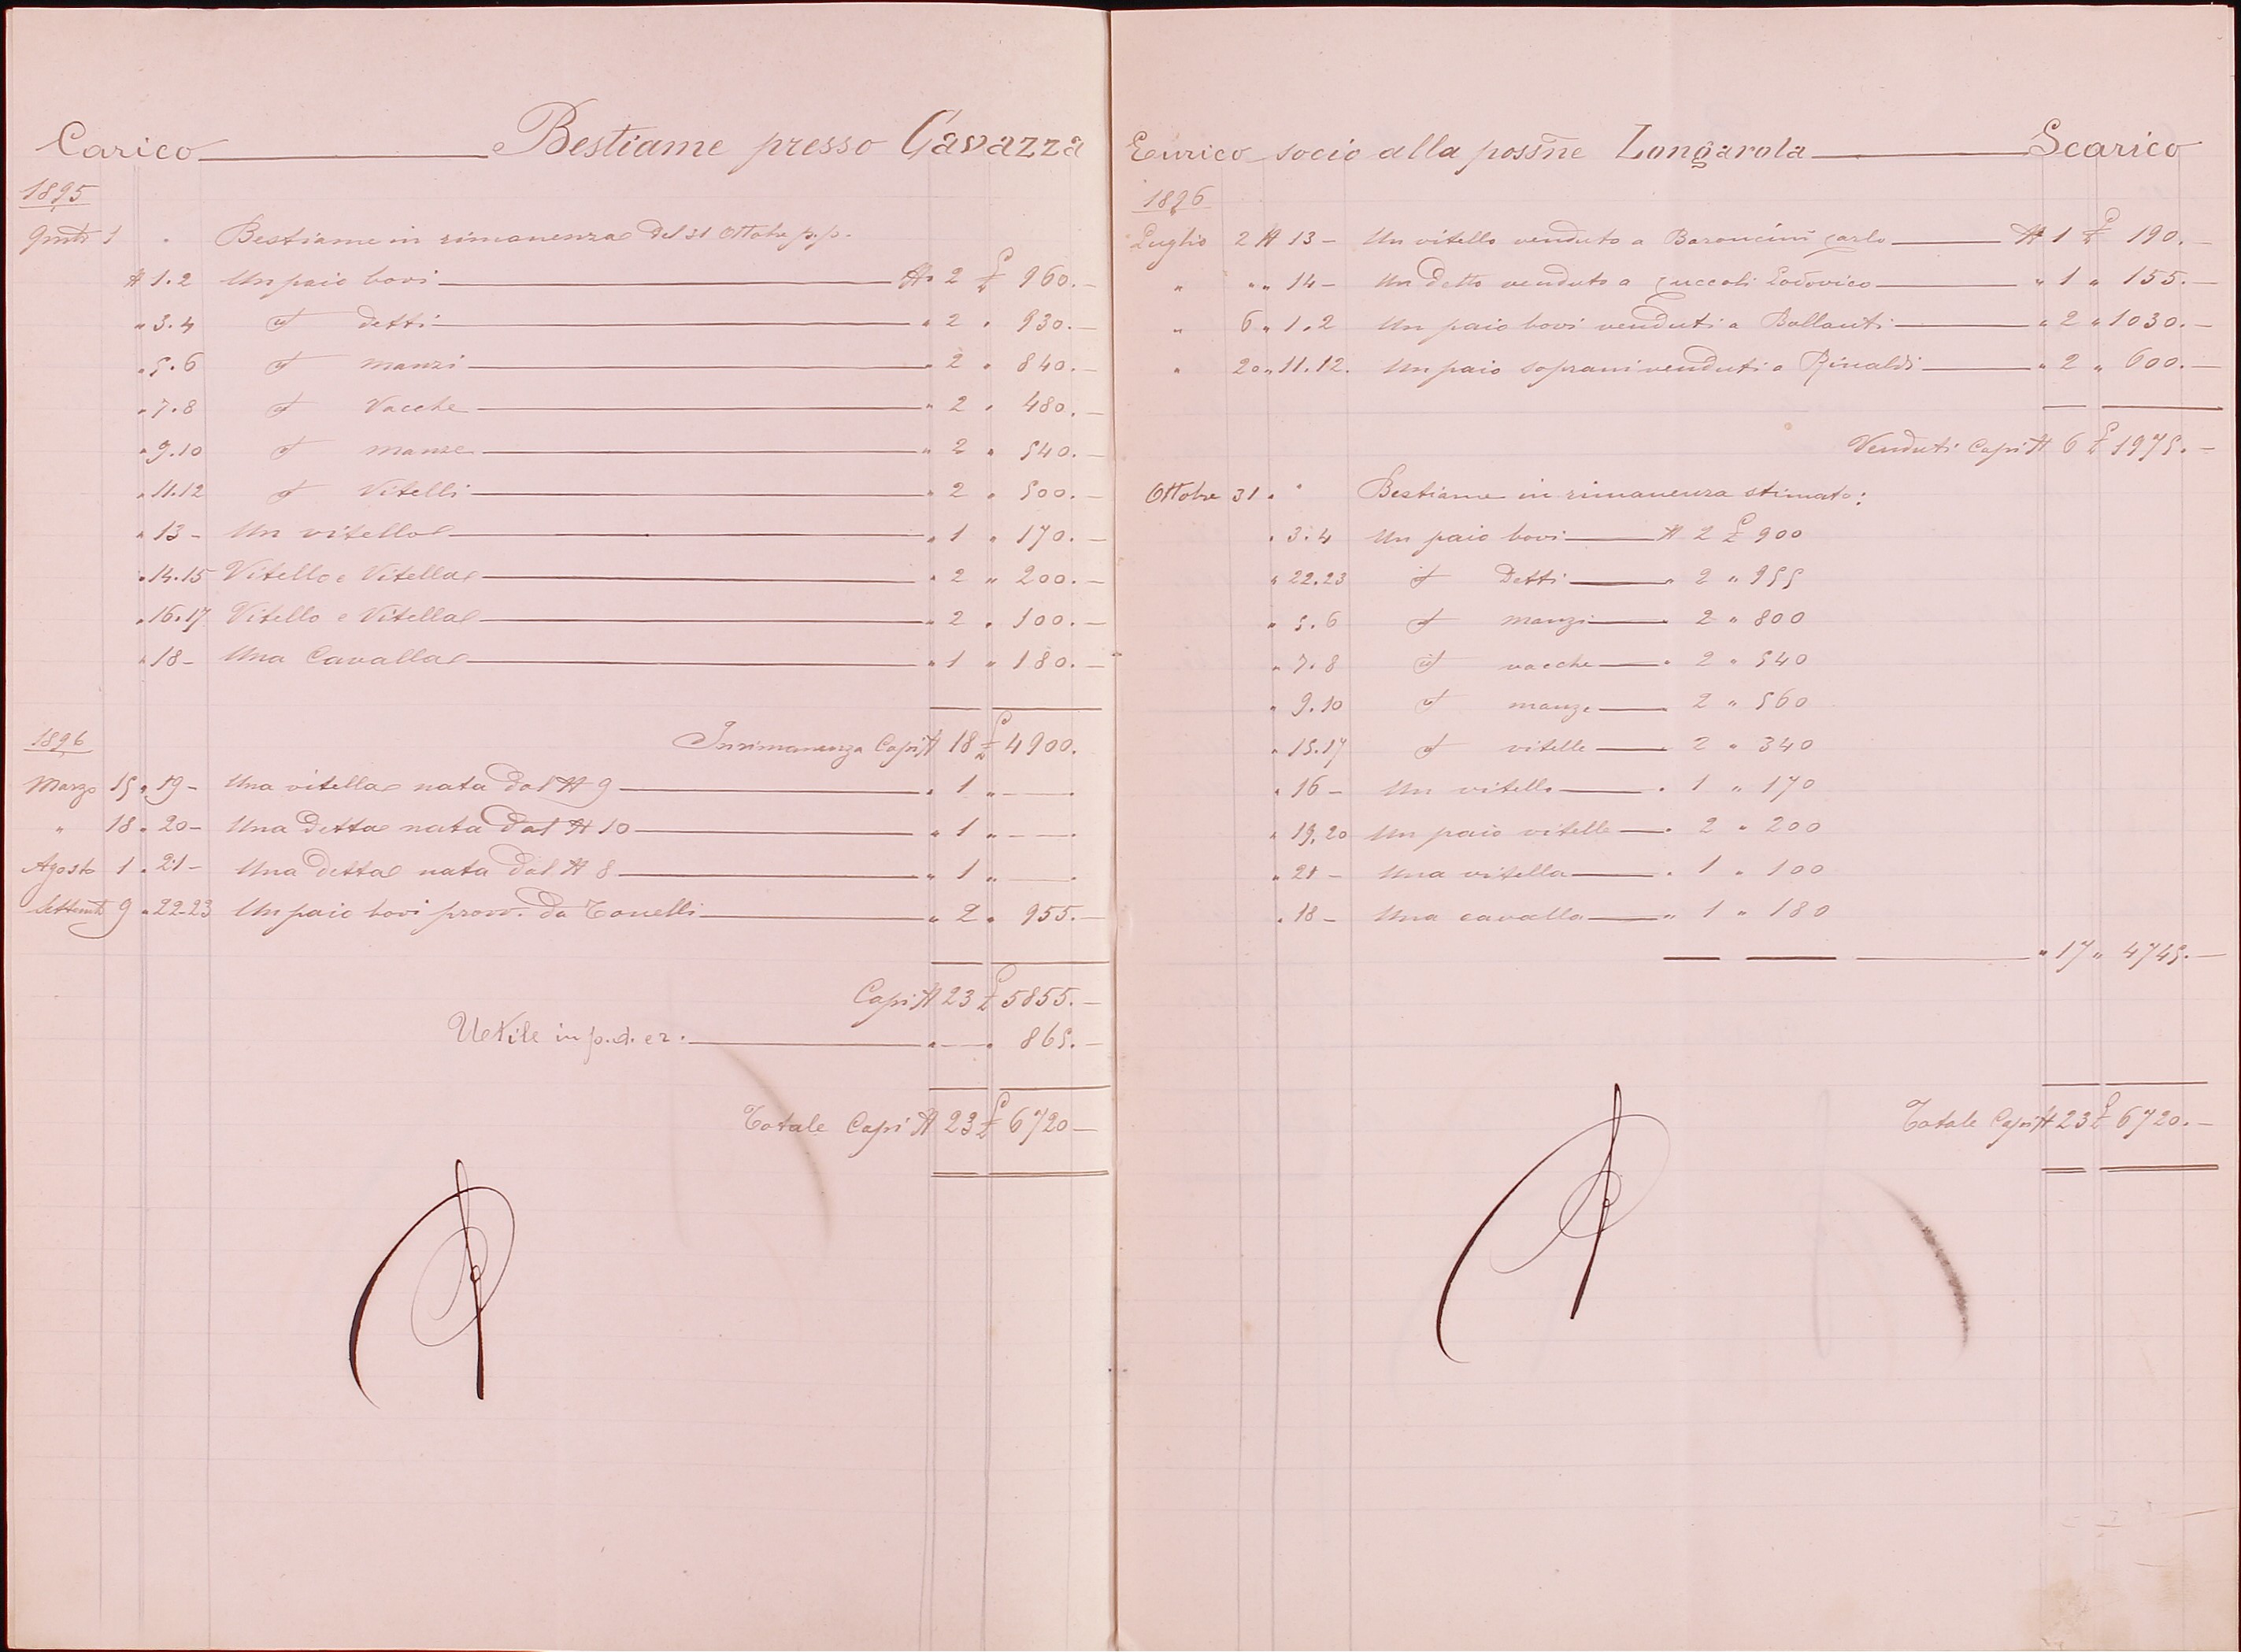 Carico Bestiame presso Cavazza
1895
9mbre 1 . Bestiame in rimanenza del 31 Ottobre p.p.
N 1.2 Un paio bovi N. 2 £ 960.—
" 3.4 id detti " 2 " 930.—
" 5.6 id manzi " 2 " 840.—
" 7.8 id Vacche " 2 " 480.—
" 9.10 id manze " 2 " 540.—
" 11.12 id Vitelli " 2 " 500.—
" 13 - Un vitello " 1 " 170.—
" 14.15 Vitello e Vitella " 2 " 200.—
" 16.17 Vitello e Vitella " 2 " 100.—
" 18 - Una Cavalla " 1 " 180.—
In rimanenza Capi N 18 £ 4900.
1896
Marzo 15 " 19 - Una vitella nata dal N 9 " 1 " —
" 18 " 20 - Una detta nata dal N 10 " 1 " —
Agosto 1 " 21 - Una detta nata dal N 8 " 1 " —
Settembre 9 " 22-23 Un paio bovi provv. da Tonelli " 2 " 955.—
Capi N 23 £ 5855.—
Utile in p.d. er. " — " 865.—
Totale Capi N 23 £ 6720—
Enrico socio alla possne Longarola Scarico
1896
Luglio 2 N 13 - Un vitello venduto a Baroncini Carlo N 1 £ 190.—
" " " 14 - Un detto venduto a Zuccoli Lodovico " 1 " 155.—
" 6 " 1.2 Un paio bovi venduti a Ballanti " 2 " 1030.—
" 20 " 11.12. Un paio soprani venduti a Rinaldi " 2 " 600.—
Venduti Capi N 6 £ 1975.—
Ottobre 31 . " Bestiame in rimanenza stimato:
" 3.4 Un paio bovi N 2 £ 900
" 22.23 id Detti " 2 " 955
" 5.6 id manzi " 2 " 800
" 7.8 id vacche " 2 " 540
" 9.10 id manze 2 " 560
" 15.17 id vitelle 2 " 340
" 16 - Un vitello " 1 " 170
" 19,20 Un paio vitelle " 2 " 200
" 21 - Una vitella " 1 " 100
" 18 - Una cavalla " 1 " 180
" 17 " 4745.—
Totale Capi N 23 £ 6720.—